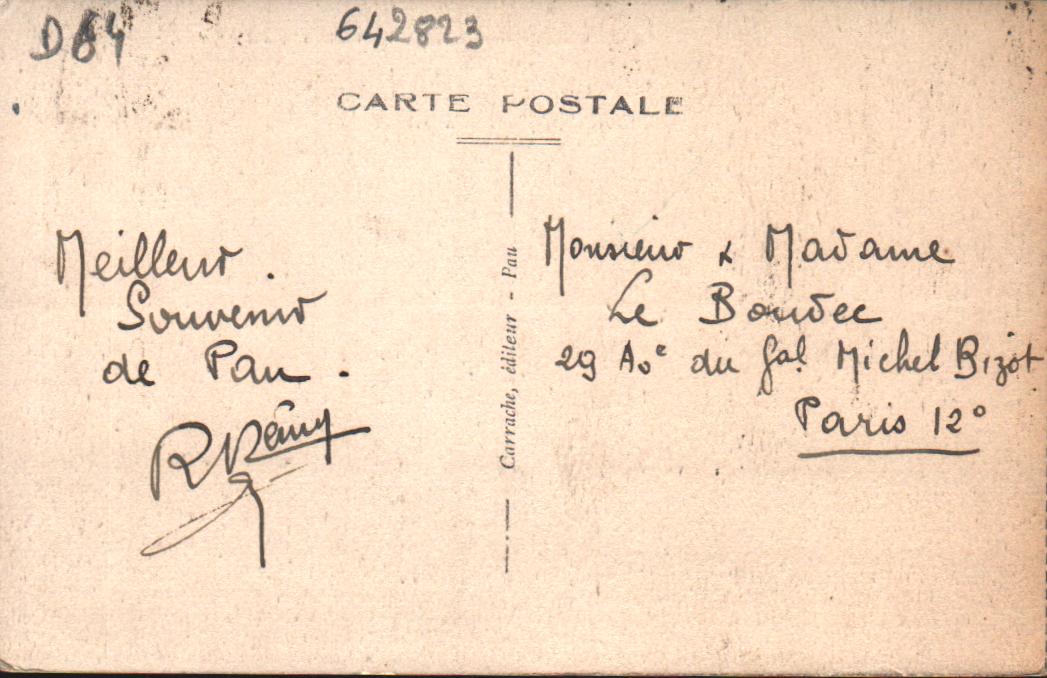 D64
642823
CARTE POSTALE
Meilleur
Souvenir
de Pau.
R Rémy
Carrache, éditeur - Pau
Monsieur & Madame
Le Boudec
29 Ave du Gal Michel Bizot
Paris 12e